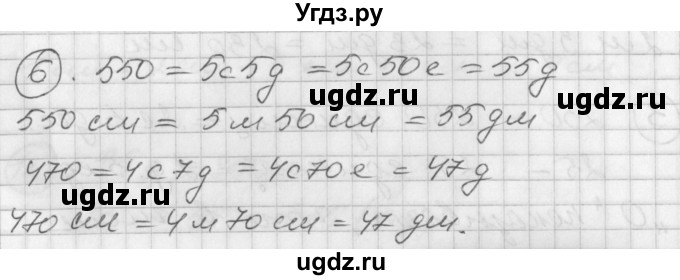 Угдз.ру
6. 550 = 5с5д = 5с50е = 55д
ugdz.ru ugdz.ru
550 см = 5 м 50 см = 55 дм
470 = 4с7д = 4с70е = 47д
ugdz.ru ugdz.ru
470 см = 4 м 70 см = 47 дм.
Угдз.ру